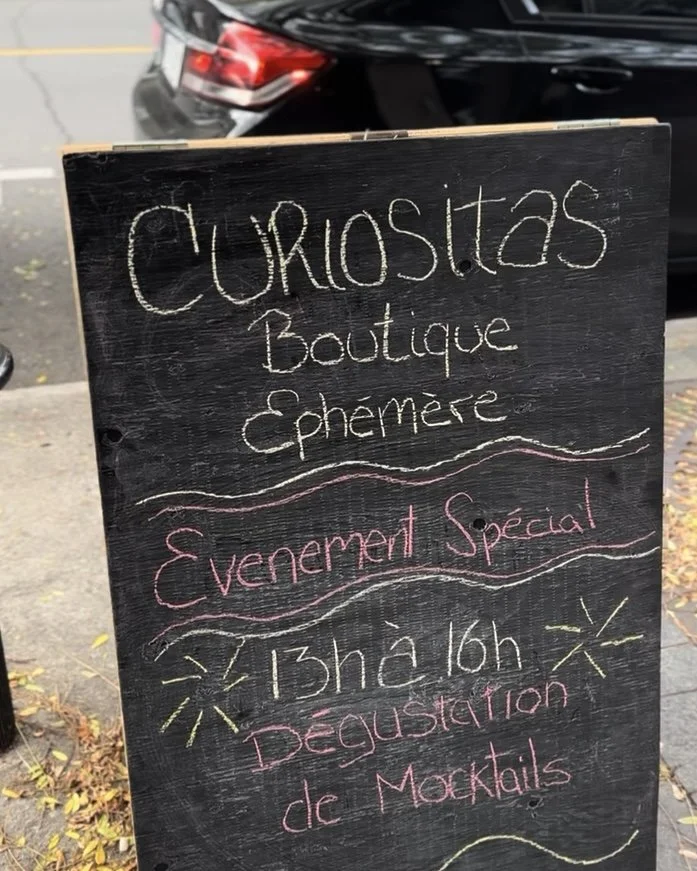 CURIOSITAS
Boutique
Ephémère
Evenement Spécial
13h à 16h
Dégustation
de Mocktails